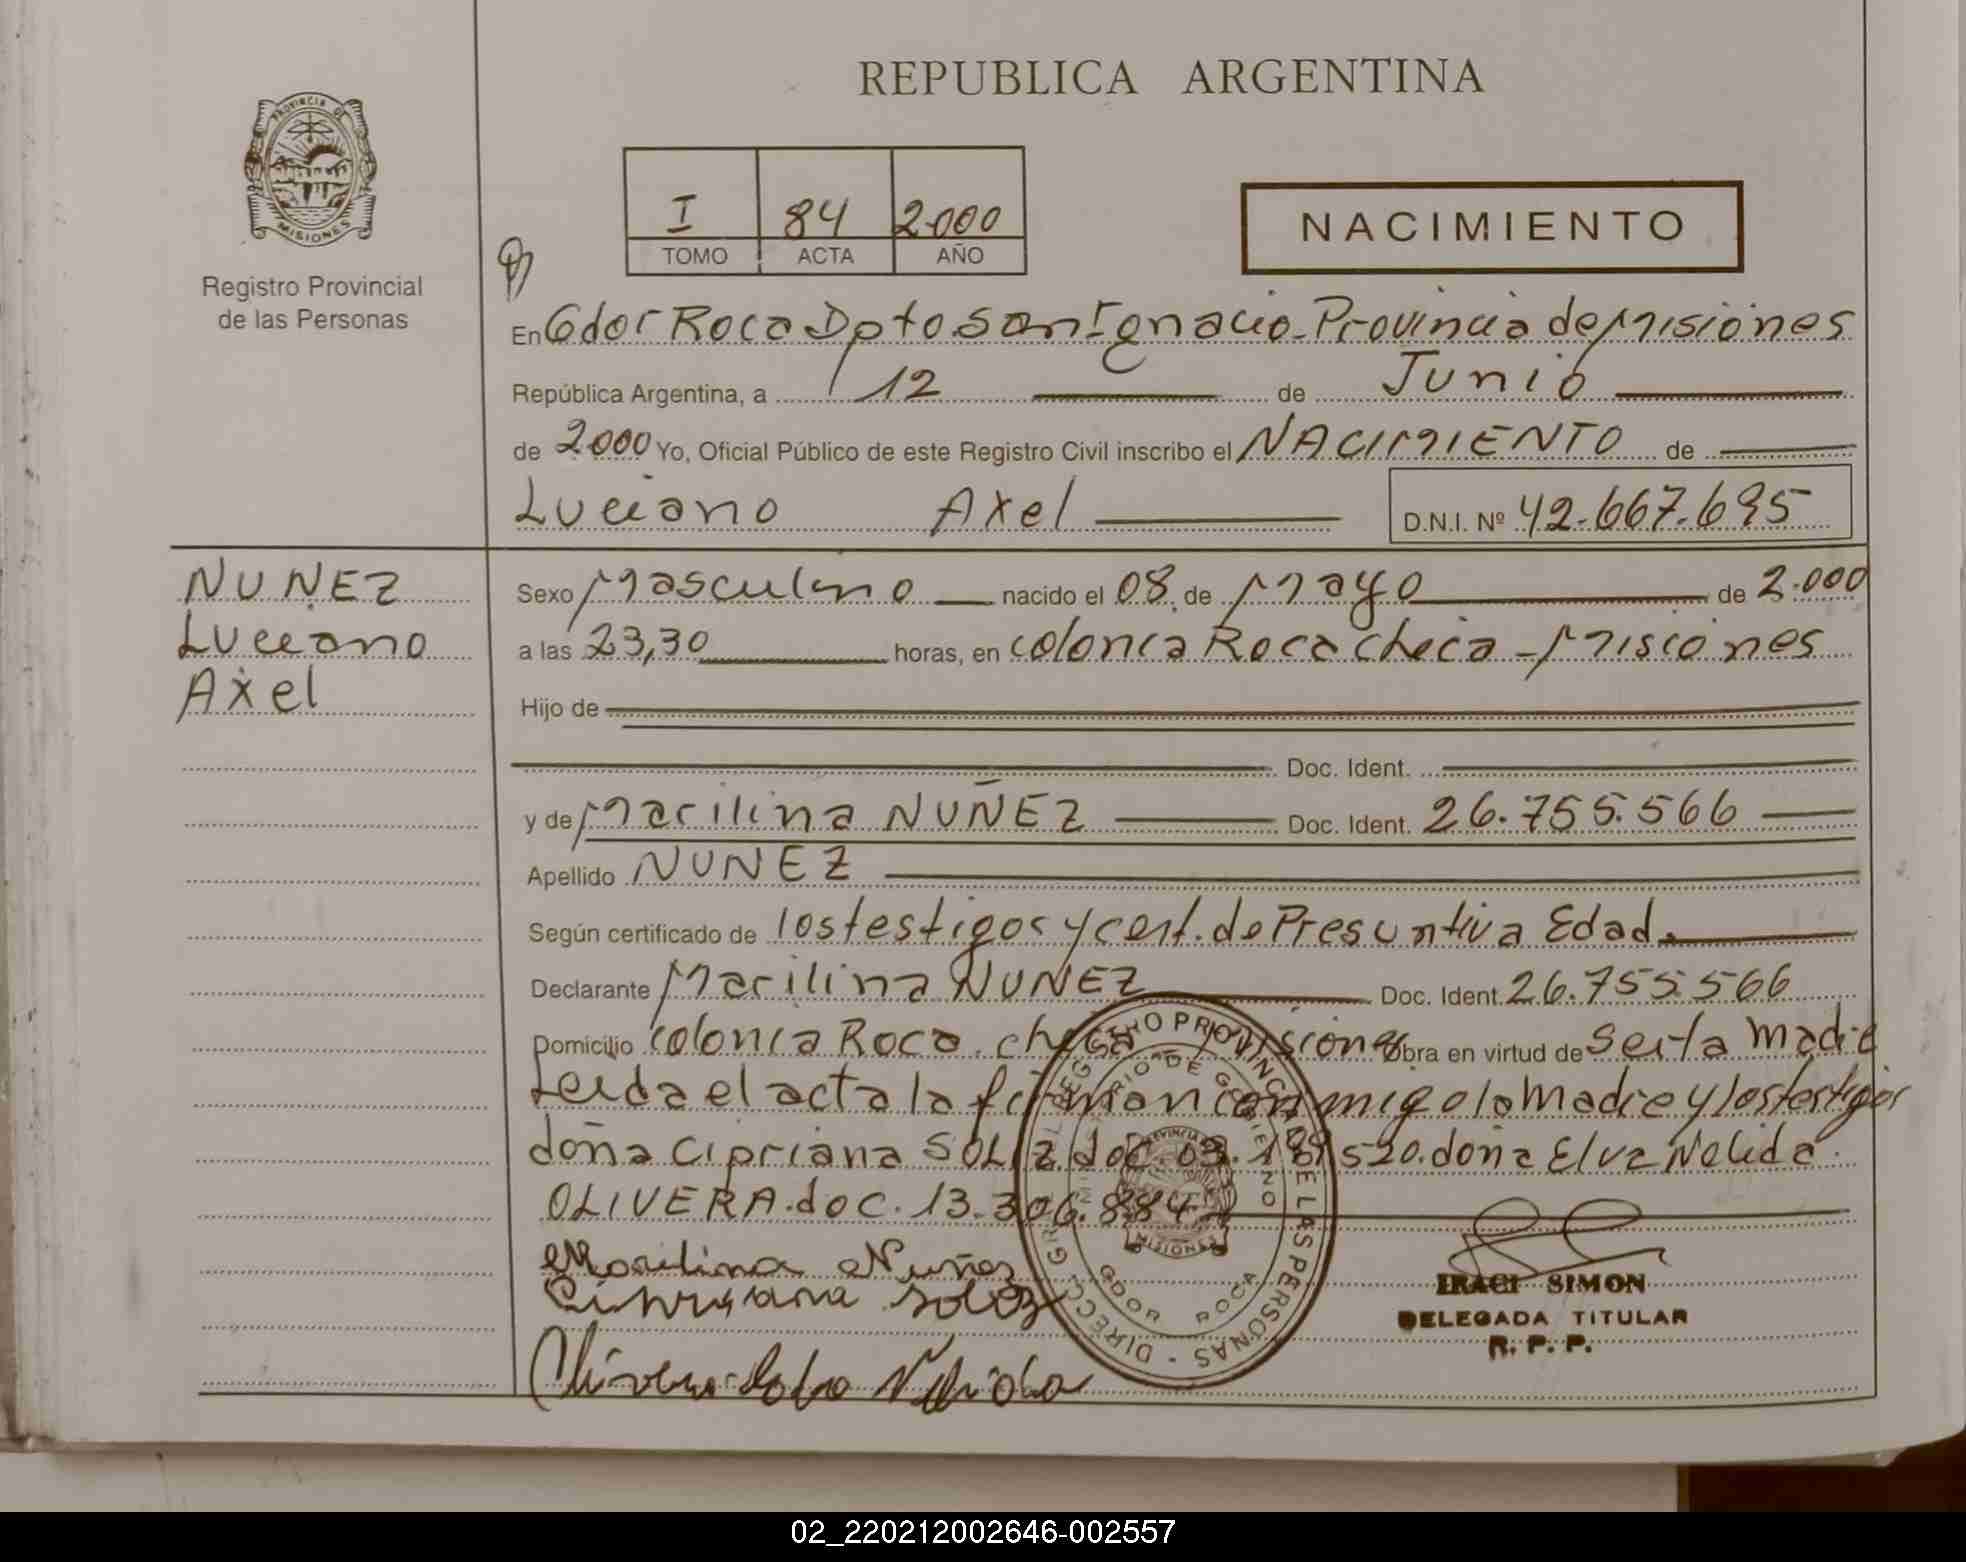 REPUBLICA ARGENTINA
PROVINCIA DE
MISIONES
Registro Provincial
de las Personas
I 84 2000
TOMO ACTA AÑO
NACIMIENTO
En Gdor Roca Dpto San Ignacio - Provincia de Misiones
República Argentina, a 12 de Junio
de 2000 Yo, Oficial Público de este Registro Civil inscribo el NACIMIENTO de
Luciano Axel D.N.I. Nº 42.667.695
NUÑEZ
Luciano
Axel
Sexo Masculino nacido el 08 de Mayo de 2.000
a las 23,30 horas, en colonia Roca chica - Misiones
Hijo de
Doc. Ident.
y de Marilina NUÑEZ Doc. Ident. 26.755.566
Apellido NUNEZ
Según certificado de los testigos y cert. de Presuntiva Edad.
Declarante Marilina NUNEZ Doc. Ident. 26.755566
Domicilio colonia Roca chica Misiones Obra en virtud de Ser la Madre
Leida el acta la firman conmigo la Madre y los testigos
doña Cipriana SOLIZ doc 03.189520. doña Elva Nelida
OLIVERA. doc. 13.306.884
Marilina Nuñez
Cipriana Soloz
Olivera Nelida
DIRECC. GRAL. REGISTRO PROVINCIAL DE LAS PERSONAS
MINISTERIO DE GOBIERNO
PROVINCIA
MISIONES
GDOR ROCA
IRACI SIMON
DELEGADA TITULAR
R. P. P.
02_220212002646-002557